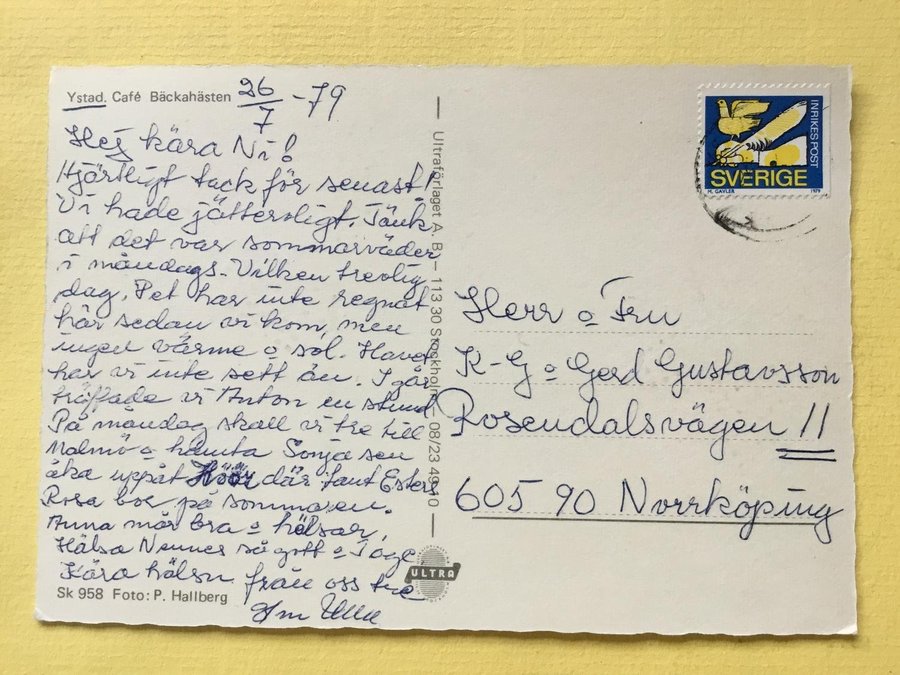 Ystad. Café Bäckahästen 26/7 -79
Hej kära Ni!
Hjärtligt tack för senast!
Vi hade jätteroligt. Tänk
att det var sommarväder
i måndags. Vilken trevlig
dag. Det har inte regnat
här sedan vi kom, men
ingen värme o sol. Havet
har vi inte sett än. I går
träffade vi Anton en stund
På måndag skall vi tre till
Malmö o hämta Sonja sen
åka uppåt Höör där tant Ester
Rosa bor på sommaren.
Anna mår bra o hälsar.
Hälsa Nennes så gott o Tage
Kära hälsn från oss tre
Sk 958 Foto: P. Hallberg
Ultraförlaget A. B. – 113 30 Stockholm 08/23 49 10
ULTRA
INRIKES POST
SVERIGE
M. GAVLER 1979
Herr o Fru
K-G o Gerd Gustavsson
Rosendalsvägen 11
605 90 Norrköping